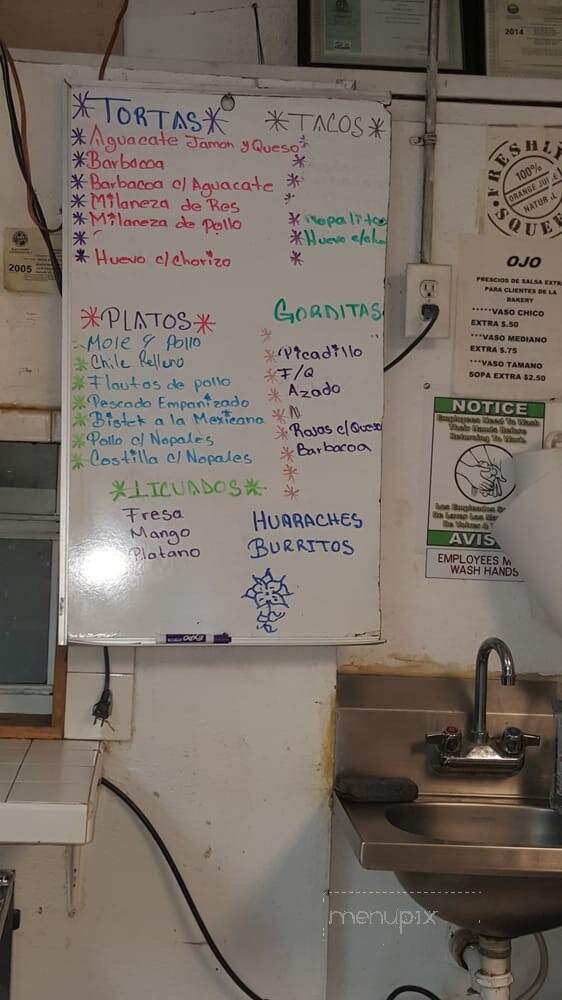 TORTAS
Aguacate Jamon y Queso
Barbacoa
Barbacoa c/ Aguacate
Milaneza de Res
Milaneza de Pollo
Huevo c/chorizo
TACOS
Nopalitos
Huevo c/cho
PLATOS
Mole y Pollo
Chile Relleno
Flautas de pollo
Pescado Empanizado
Bistek a la Mexicana
Pollo c/ Nopales
Costilla c/ Nopales
GORDITAS
Picadillo
F/Q
Azado
Rajas c/Queso
Barbacoa
LICUADOS
Fresa
Mango
Platano
HUARACHES
BURRITOS
EXPO
2014
2005
FRESHLY
100%
ORANGE JUI
NATUR L
SQUEE
OJO
PRESCIOS DE SALSA EXTR
PARA CLIENTES DE LA
BAKERY
*****VASO CHICO
EXTRA $.50
***VASO MEDIANO
EXTRA $.75
***VASO TAMANO
SOPA EXTRA $2.50
NOTICE
Employees Need To Wash
Their Hands Before
Returning To Work.
Los Empleados
De Lavar Las Ma
De Volver A
AVIS
EMPLOYEES M
WASH HANDS
menupix